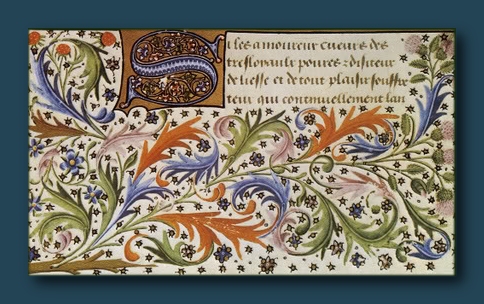 Si les amoureux cueurs des
tresloyaulx poures
de liesse et de tout plaisir souffre
teux qui continuellement lan